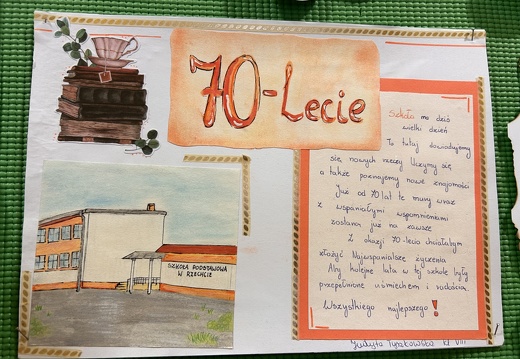 70-Lecie
Szkoła ma dziś
wielki dzień
To tutaj dowiadujemy
się nowych rzeczy Uczymy się
a także poznajemy nowe znajomości
Już od 70 lat te mury wraz
z wspaniałymi wspomnieniami
zostaną już na zawsze
Z okazji 70-lecia chciałabym
złożyć Najwspanialsze życzenia
Aby kolejne lata w tej szkole były
przepełnione uśmiechem i radością.
Wszystkiego najlepszego!
SZKOŁA PODSTAWOWA
W RZECHCIE
Judyta kl VIII